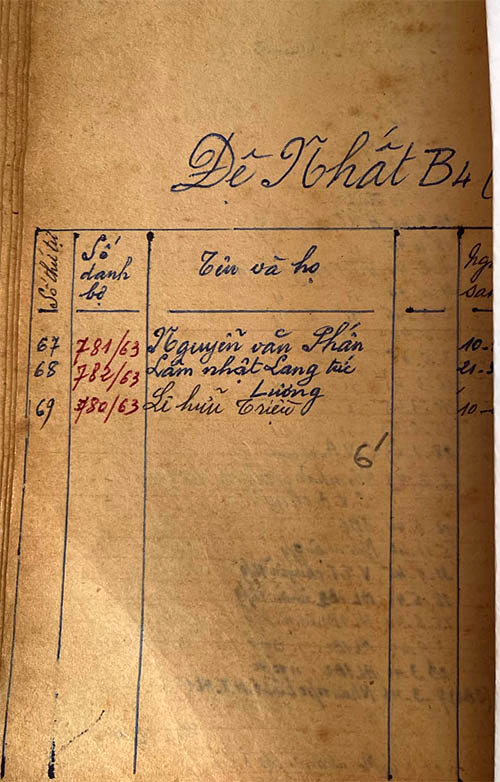 Đệ Nhất B4 (
Số thứ tự
Số danh bộ
Tên và họ
Ng
san
67 781/63 Nguyễn văn Phấn 10-
68 782/63 Lâm nhật Lang tức Lương 21-
69 780/63 Lê hữu Triều 10-
6'